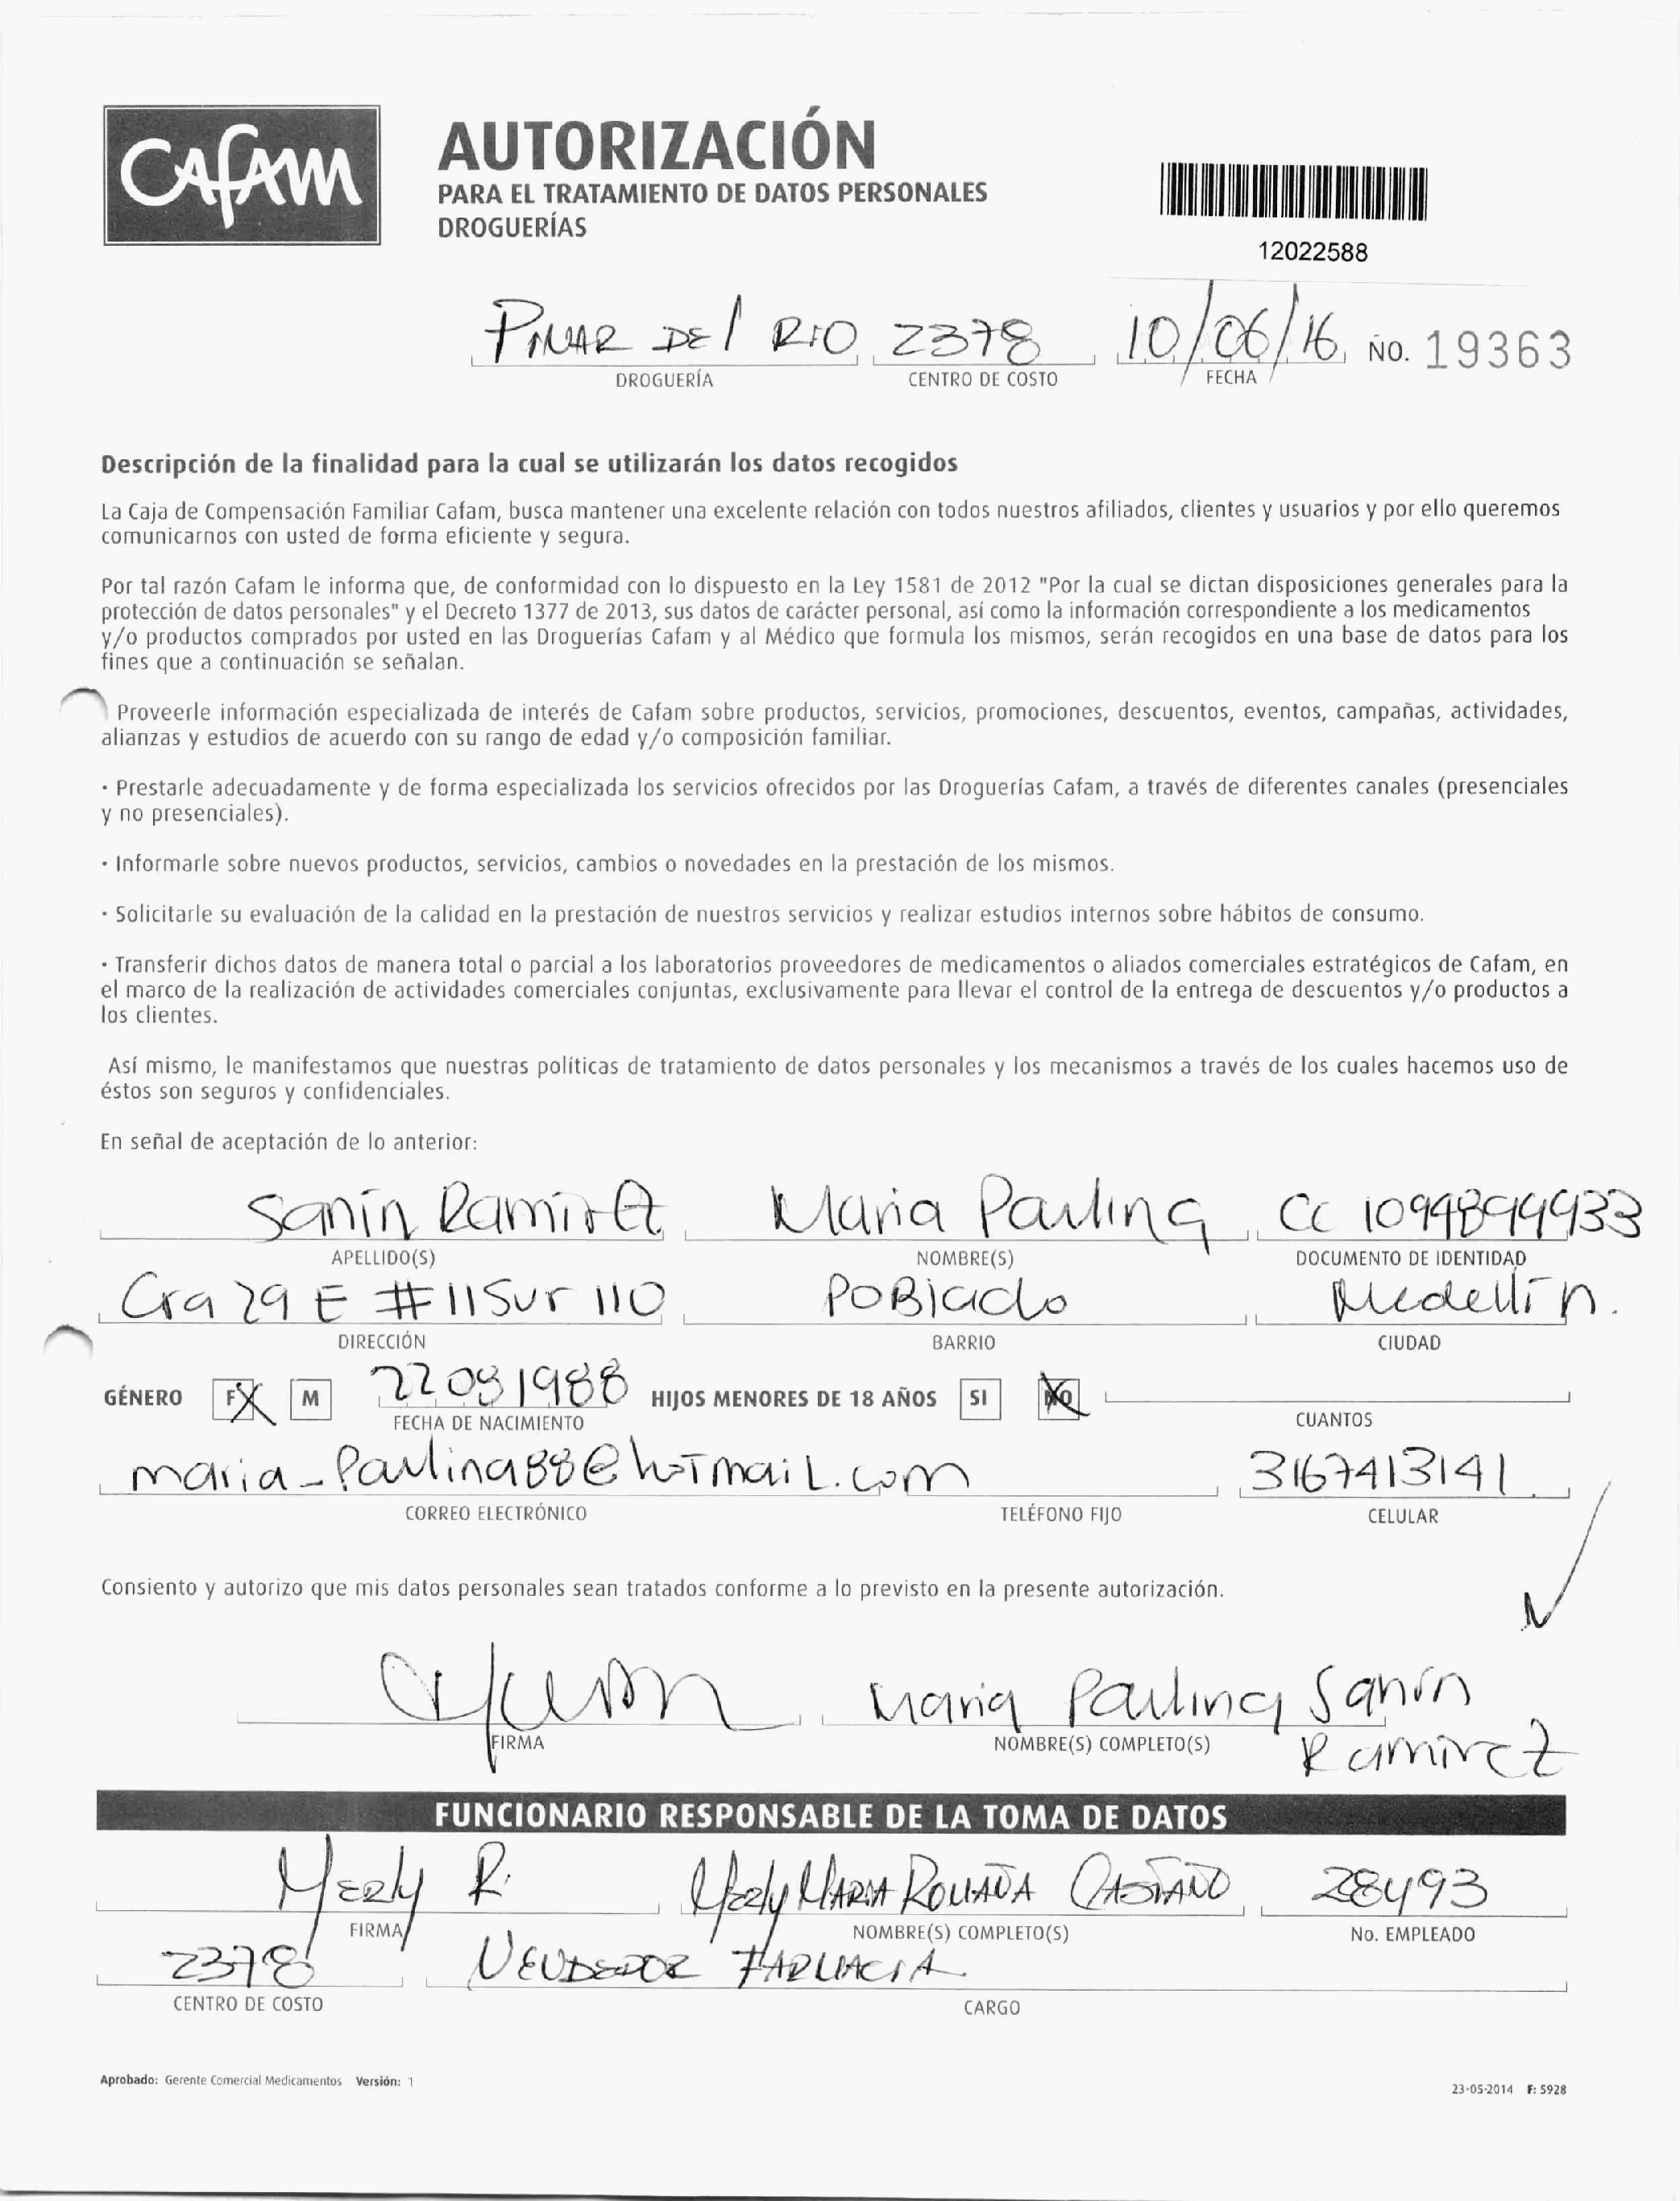 Cafam
AUTORIZACIÓN
PARA EL TRATAMIENTO DE DATOS PERSONALES
DROGUERÍAS
12022588
DEl RIO 2378 10/06/16 NO. 19363
DROGUERÍA CENTRO DE COSTO FECHA
Descripción de la finalidad para la cual se utilizarán los datos recogidos
La Caja de Compensación Familiar Cafam, busca mantener una excelente relación con todos nuestros afiliados, clientes y usuarios y por ello queremos
comunicarnos con usted de forma eficiente y segura.
Por tal razón Cafam le informa que, de conformidad con lo dispuesto en la Ley 1581 de 2012 "Por la cual se dictan disposiciones generales para la
protección de datos personales" y el Decreto 1377 de 2013, sus datos de carácter personal, así como la información correspondiente a los medicamentos
y/o productos comprados por usted en las Droguerías Cafam y al Médico que formula los mismos, serán recogidos en una base de datos para los
fines que a continuación se señalan.
Proveerle información especializada de interés de Cafam sobre productos, servicios, promociones, descuentos, eventos, campañas, actividades,
alianzas y estudios de acuerdo con su rango de edad y/o composición familiar.
· Prestarle adecuadamente y de forma especializada los servicios ofrecidos por las Droguerías Cafam, a través de diferentes canales (presenciales
y no presenciales).
· Informarle sobre nuevos productos, servicios, cambios o novedades en la prestación de los mismos.
· Solicitarle su evaluación de la calidad en la prestación de nuestros servicios y realizar estudios internos sobre hábitos de consumo.
· Transferir dichos datos de manera total o parcial a los laboratorios proveedores de medicamentos o aliados comerciales estratégicos de Cafam, en
el marco de la realización de actividades comerciales conjuntas, exclusivamente para llevar el control de la entrega de descuentos y/o productos a
los clientes.
Así mismo, le manifestamos que nuestras políticas de tratamiento de datos personales y los mecanismos a través de los cuales hacemos uso de
éstos son seguros y confidenciales.
En señal de aceptación de lo anterior:
Sanín Ramirez Maria Paulina CC 1094899933
APELLIDO(S) NOMBRE(S) DOCUMENTO DE IDENTIDAD
Cra 29 E # 11 Sur 110 Poblado Medellín.
DIRECCIÓN BARRIO CIUDAD
GÉNERO F M 22081988 HIJOS MENORES DE 18 AÑOS SI NO
FECHA DE NACIMIENTO CUANTOS
maria_Paulina88@hotmail.com 3167413141
CORREO ELECTRÓNICO TELÉFONO FIJO CELULAR
Consiento y autorizo que mis datos personales sean tratados conforme a lo previsto en la presente autorización.
Maria Paulina Sanín
FIRMA NOMBRE(S) COMPLETO(S) Ramirez
FUNCIONARIO RESPONSABLE DE LA TOMA DE DATOS
R. MARIA CASTAÑO 28493
FIRMA NOMBRE(S) COMPLETO(S) No. EMPLEADO
2378 VENDEDOR FARMACIA
CENTRO DE COSTO CARGO
Aprobado: Gerente Comercial Medicamentos Versión: 1
23-05-2014 F: 5928